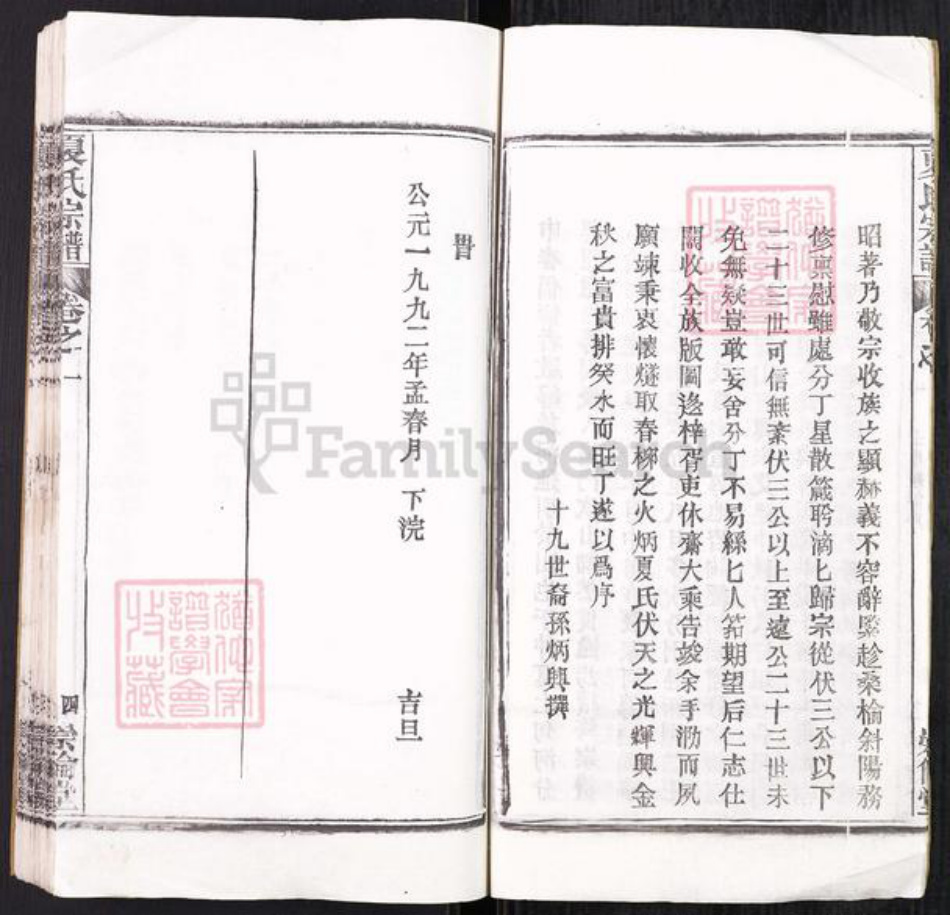 昭著乃敬宗收族之顯赫義不容辭緊趁桑榆斜陽務
修禀慰雖處分丁星散箴聆滴匕歸宗從伏三公以下
二十三世可信無紊伏三公以上至遠公二十三世未
免無疑豈敢妄舍分丁不易繇匕人 期望后仁志仕
闊收全族版圖逸梓胥吏休齋大乘告竣余手泐而夙
願竦秉衷懷燧取春柳之火炳夏氏伏天之光輝興金
秋之富貴排癸水而旺丁遂以爲序
十九世裔孫炳興撰
公元一九九二年孟春月 下浣
吉旦
夏氏宗譜
卷之一
四
FamilySearch